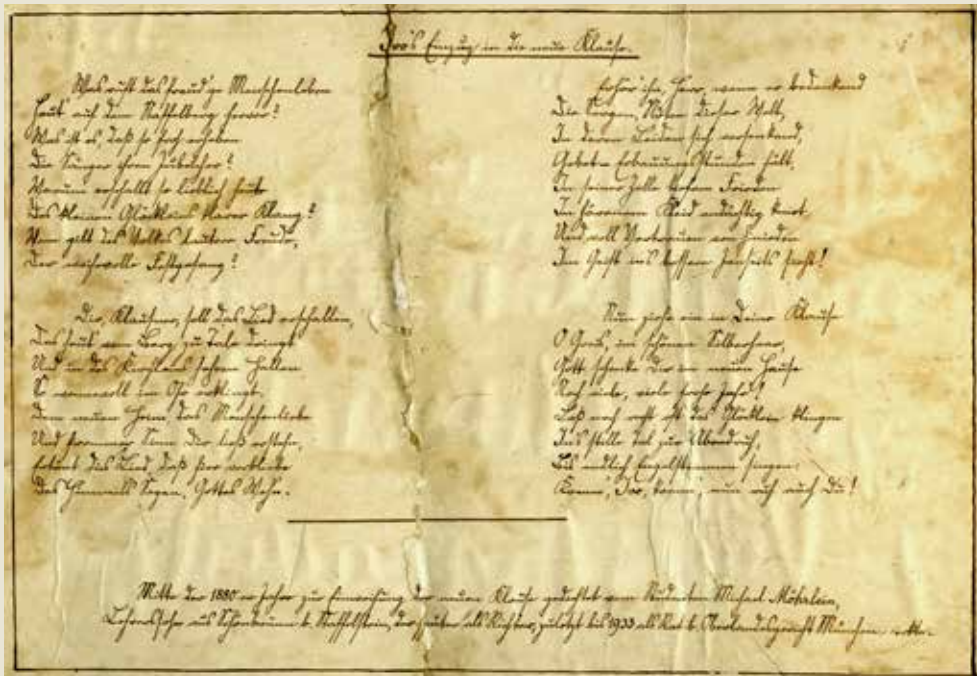 Ivo's Einzug in die neue Klause.
Was ruft das freud'ge Menschenleben
Heut' auf dem Staffelberg hervor?
Was ist es, daß so hoch erheben
Die Sänger ihren Jubelchor?
Warum erschallt so lieblich heute
Des kleinen Glöckleins klarer Klang?
Wem gilt des Volkes lautere Freude,
Der weihevolle Festgesang?
Dir, Klausner, soll das Lied erschallen,
Das heut' vom Berg zu Tale dringt
Und in des Kirchleins hohen Hallen
So wonnevoll im Ohr erklingt.
Dem neuen Heim, das Menschenliebe
Und frommer Sinn Dir ließ erstehn,
Ertönt das Lied, daß hier verbliebe
Des Himmels Segen, Gottes Wehn.
Erhör' ihn, Herr, wenn er bedenkend
Die Sorgen, Nöten dieser Welt,
In deren Leiden sich versenkend,
Gebet- Erbauungsstunden hält,
In seiner Zelle Frieden
In härenem Kleid andächtig kniet
Und voll Vertrauen von hinieden
Im Geist ins bessere Jenseits sieht!
Nun ziehe ein in Deine Klause
O Greis, im schönen Silberhaar,
Gott schenke Dir im neuen Hause
Noch viele, viele frohe Jahr'!
Laß noch recht oft das Glöcklein klingen
Ins stille Tal zur Abendruh,
Bis endlich Engelstimmen singen:
Komm', Ivo, komm', nun ruh auch Du!
Mitte der 1880er Jahre zur Einweihung der neuen Klause gedichtet vom Studenten Michael Möhrlein,
Lehrerssohn aus Schönbrunn b. Staffelstein, der später als Richter, zuletzt bis 1933 als Rat b. Oberlandesgericht München wirkte.